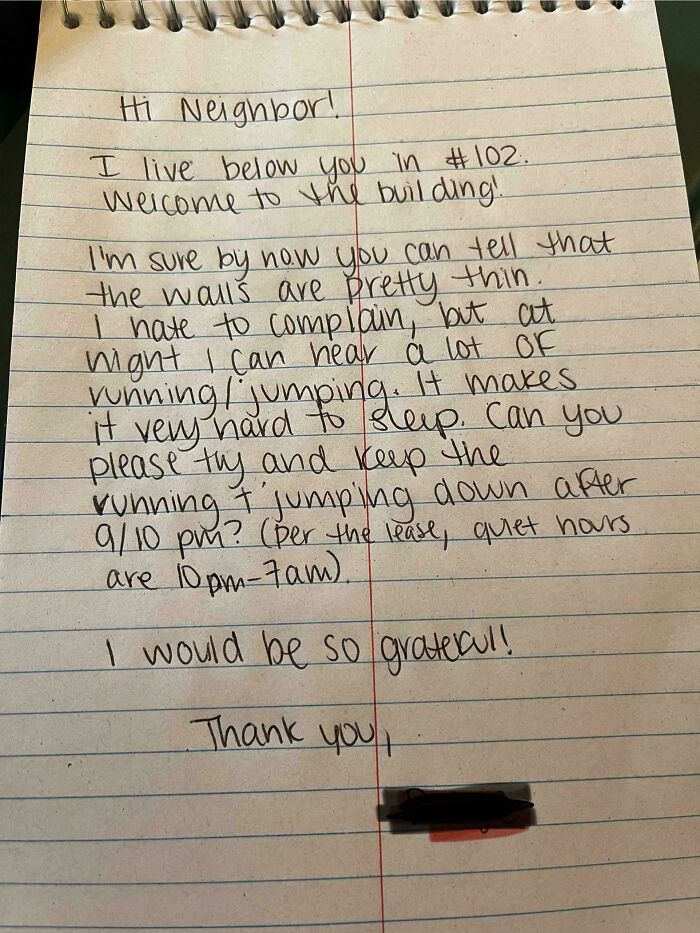 Hi Neighbor!
I live below you in #102.
Welcome to the building!
I'm sure by now you can tell that
the walls are pretty thin.
I hate to complain, but at
night I can hear a lot of
running/jumping. It makes
it very hard to sleep. Can you
please try and keep the
running + jumping down after
9/10 pm? (per the lease, quiet hours
are 10pm-7am).
I would be so grateful!
Thank you,